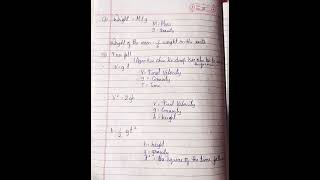 Weight = M × g
M = Mass
g = Gravity
Weight of the moon = 1/6 weight on the earth
Free fall
V = g t
V = Final Velocity
g = Gravity
T = Time
V² = 2gh
V = Final Velocity
g = Gravity
h = height
h = 1/2 gt²
h = height
g = gravity
t² = the square of the time